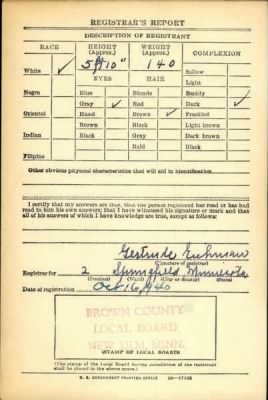 REGISTRAR'S REPORT
DESCRIPTION OF REGISTRANT
RACE HEIGHT (Approx.) WEIGHT (Approx.) COMPLEXION
White ✓ 5 ft 10" 140 Sallow
EYES HAIR Light
Negro Blue Blonde Ruddy
Gray ✓ Red Dark ✓
Oriental Hazel Brown ✓ Freckled
Brown Black Light brown
Indian Black Gray Dark brown
Bald Black
Filipino
Other obvious physical characteristics that will aid in identification
I certify that my answers are true; that the person registered has read or has had
read to him his own answers; that I have witnessed his signature or mark and that
all of his answers of which I have knowledge are true, except as follows:
Gertrude
(Signature of registrar)
Registrar for 2 Springfield Minnesota
(Precinct) (Ward) (City or county) (State)
Date of registration Oct 16, 1940
BROWN COUNTY
LOCAL BOARD
NEW ULM, MINN.
STAMP OF LOCAL BOARD
(The stamp of the Local Board having jurisdiction of the registrant
shall be placed in the above space.)
U. S. GOVERNMENT PRINTING OFFICE